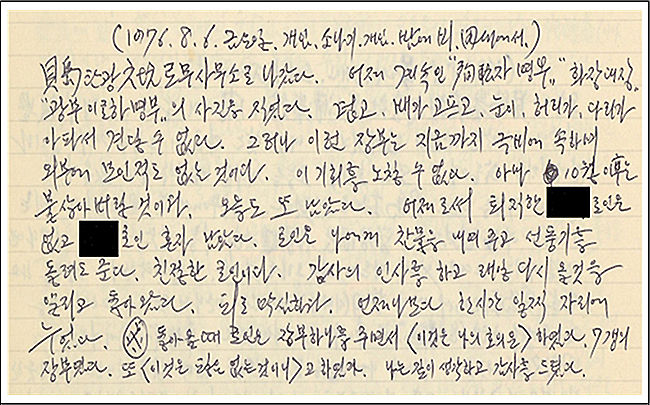 (1976. 8. 6. 금요일. 개임. 소나기. 개임. 밤에 비. 田川에서.)
貝島炭광 로무사무소로 나갔다. 어제 계속인 "殉職者명부" 화장대장.
"광부이로하명부"의 사진을 찍었다. 덥고, 배가 고프고, 눈이, 허리가, 다리가
아파서 견딜 수 없다. 그러나 이런 장부는 지금까지 극비에 속하며
외부에 보인적도 없는 것이다. 이 기회를 노칠 수 없다. 아마 10월 이후는
불살아버릴 것이다. 오늘도 또 남았다. 어제로써 퇴직한 로인은
없고 로인 혼자 남았다. 로인은 나에게 찬물을 내여주고 선풍기를
돌려도 준다. 친절한 로인이다. 감사의 인사를 하고 래일 다시 올것을
알리고 돌아왔다. 피로 막심하다. 언제나보다 한시간 일찍 자리에
누웠다. 돌아올때 로인은 장부하나를 주면서 <이것은 나의 호의요> 하였다. 7갱의
장부였다. 또 <이것은 하나 없는것이니>고 하였다. 나는 깊이 생각하고 감사를 드렸다.